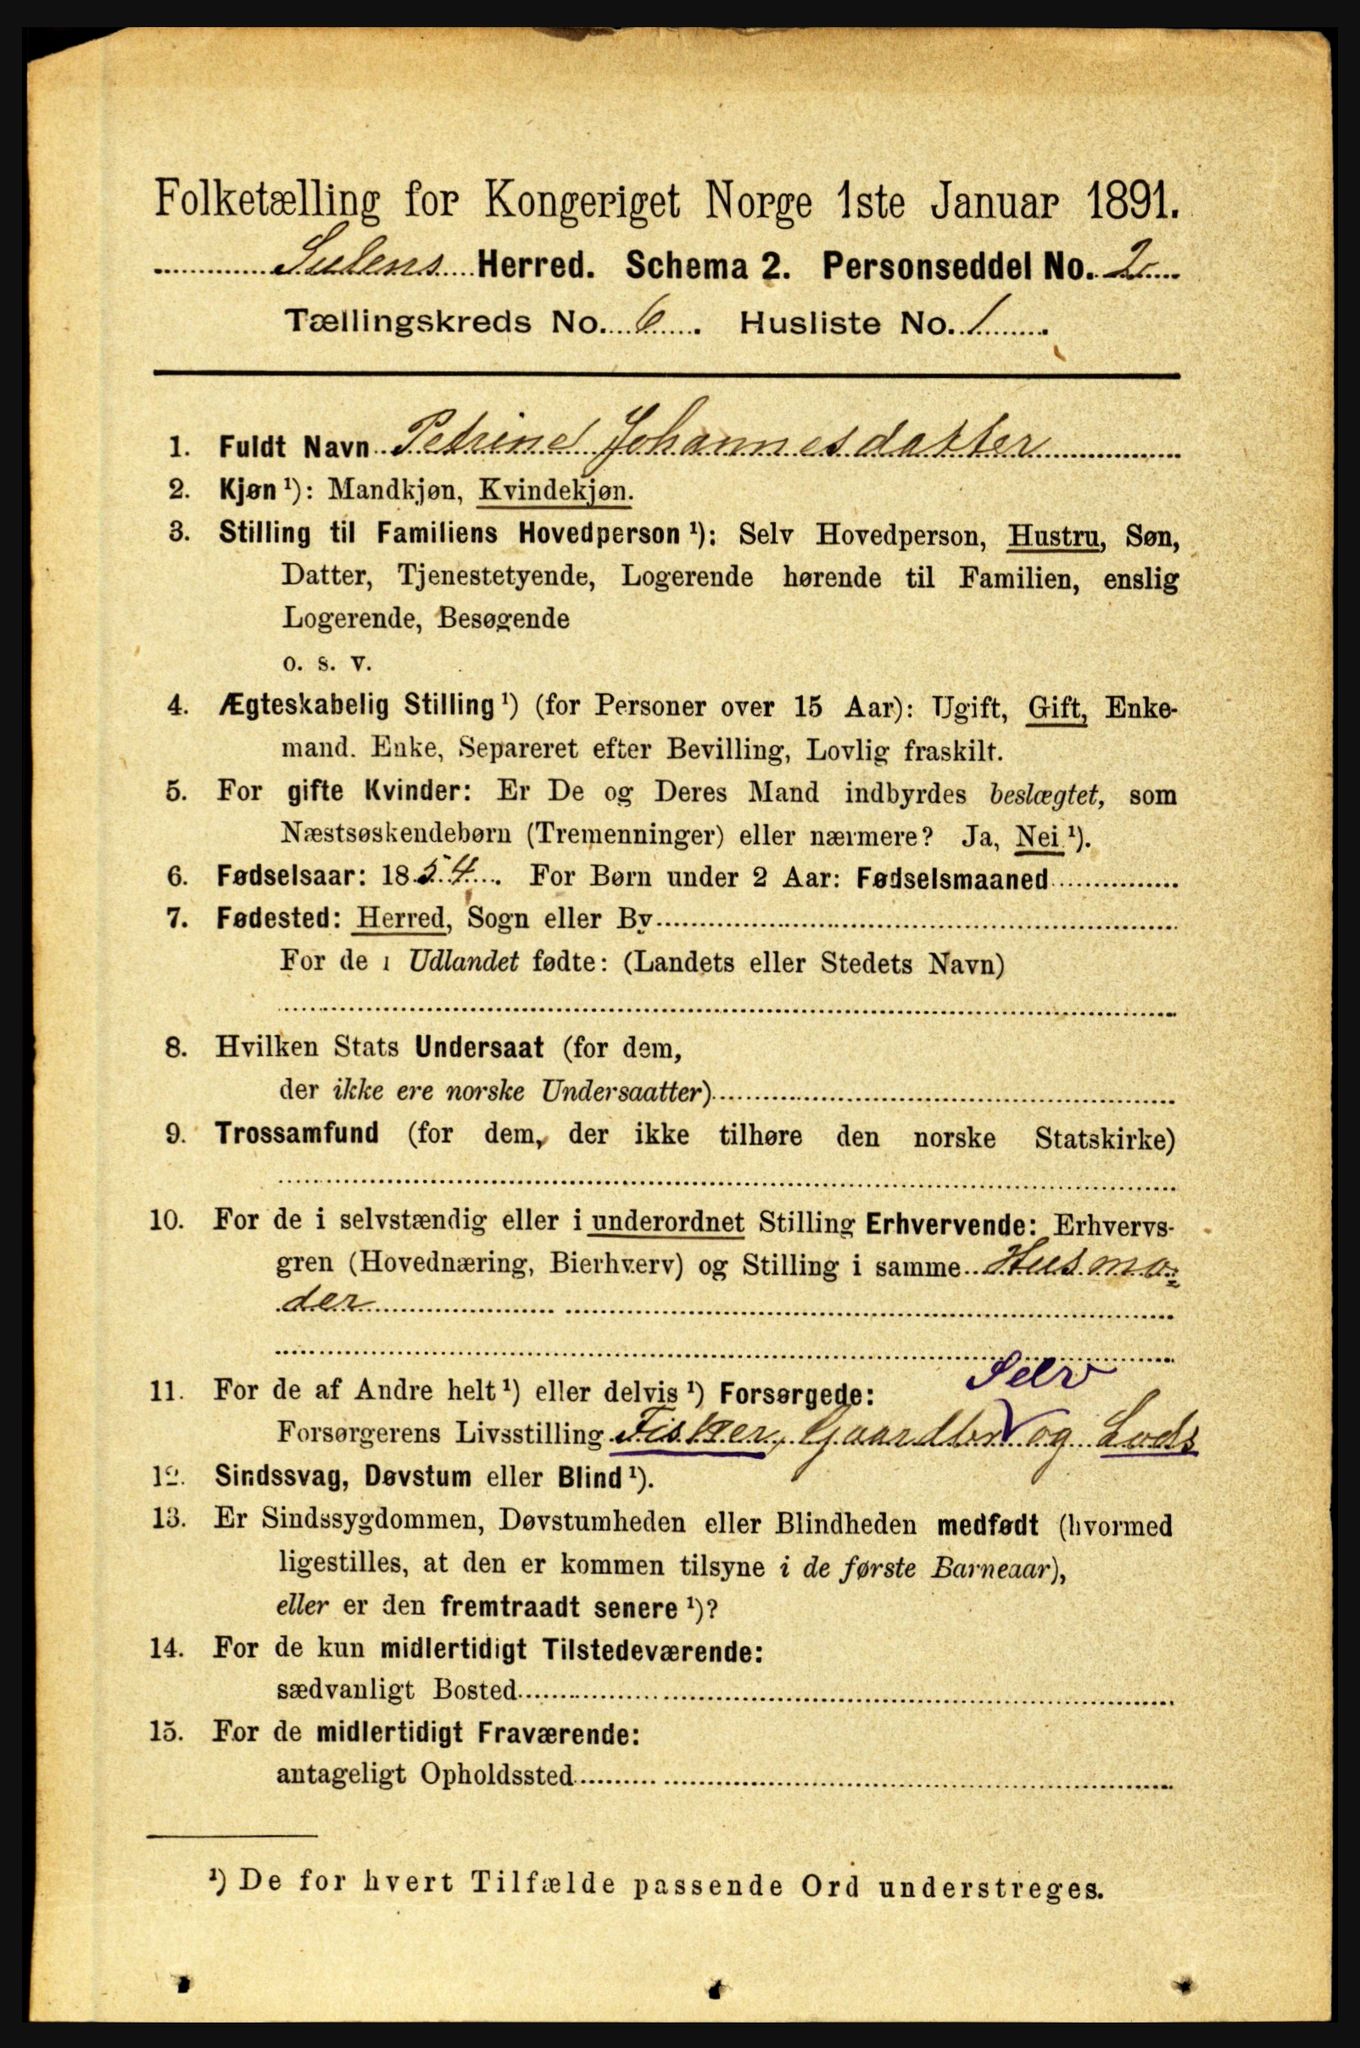 Folketælling for Kongeriget Norge 1ste Januar 1891.
Sulens Herred. Schema 2. Personseddel No. 2
Tællingskreds No. 6. Husliste No. 1.
1. Fuldt Navn Petrine Johannesdatter
2. Kjøn ¹): Mandkjøn, Kvindekjøn.
3. Stilling til Familiens Hovedperson ¹): Selv Hovedperson, Hustru, Søn,
Datter, Tjenestetyende, Logerende hørende til Familien, enslig
Logerende, Besøgende
o. s. v.
4. Ægteskabelig Stilling ¹) (for Personer over 15 Aar): Ugift, Gift, Enke-
mand. Enke, Separeret efter Bevilling, Lovlig fraskilt.
5. For gifte Kvinder: Er De og Deres Mand indbyrdes beslægtet, som
Næstsøskendebørn (Tremenninger) eller nærmere? Ja, Nei ¹).
6. Fødselsaar: 1854. For Børn under 2 Aar: Fødselsmaaned
7. Fødested: Herred, Sogn eller By
For de i Udlandet fødte: (Landets eller Stedets Navn)
8. Hvilken Stats Undersaat (for dem,
der ikke ere norske Undersaatter)
9. Trossamfund (for dem, der ikke tilhøre den norske Statskirke)
10. For de i selvstændig eller i underordnet Stilling Erhvervende: Erhvervs-
gren (Hovednæring, Bierhverv) og Stilling i samme Husmo=
der
Selv
11. For de af Andre helt ¹) eller delvis ¹) Forsørgede:
Forsørgerens Livsstilling Fisker, Gaardbr og Lods
12. Sindssvag, Døvstum eller Blind ¹).
13. Er Sindssygdommen, Døvstumheden eller Blindheden medfødt (hvormed
ligestilles, at den er kommen tilsyne i de første Barneaar),
eller er den fremtraadt senere ¹)?
14. For de kun midlertidigt Tilstedeværende:
sædvanligt Bosted
15. For de midlertidigt Fraværende:
antageligt Opholdssted
¹) De for hvert Tilfælde passende Ord understreges.